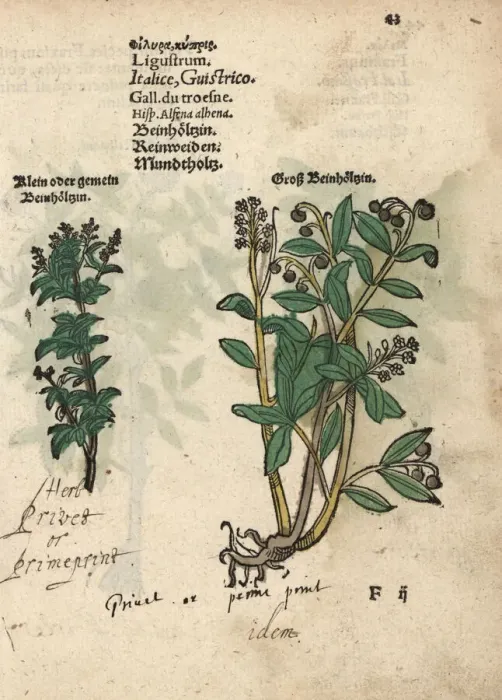 43
Φίλυρα, κύπρις.
Liguſtrum.
Italice, Guiſtrico.
Gall. du troeſne.
Hiſp. Alfena alhena.
Beinhöltzin.
Reinweiden.
Mundtholtz.
Klein oder gemein
Beinhöltzin.
Groß Beinhöltzin.
Herb
Privet
or
primeprint
Privet or prime print
idem
F ij